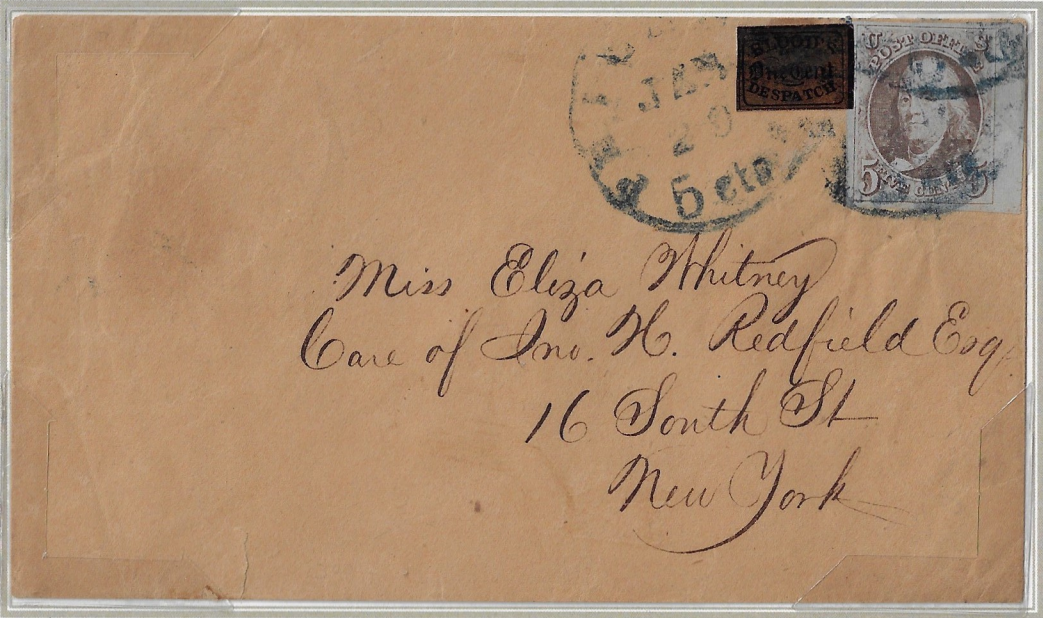 JAN
20
5 cts
One Cent
DESPATCH
POST OFFICE
5
Miss Eliza Whitney
Care of Jno. H. Redfield Esq
16 South St
New York